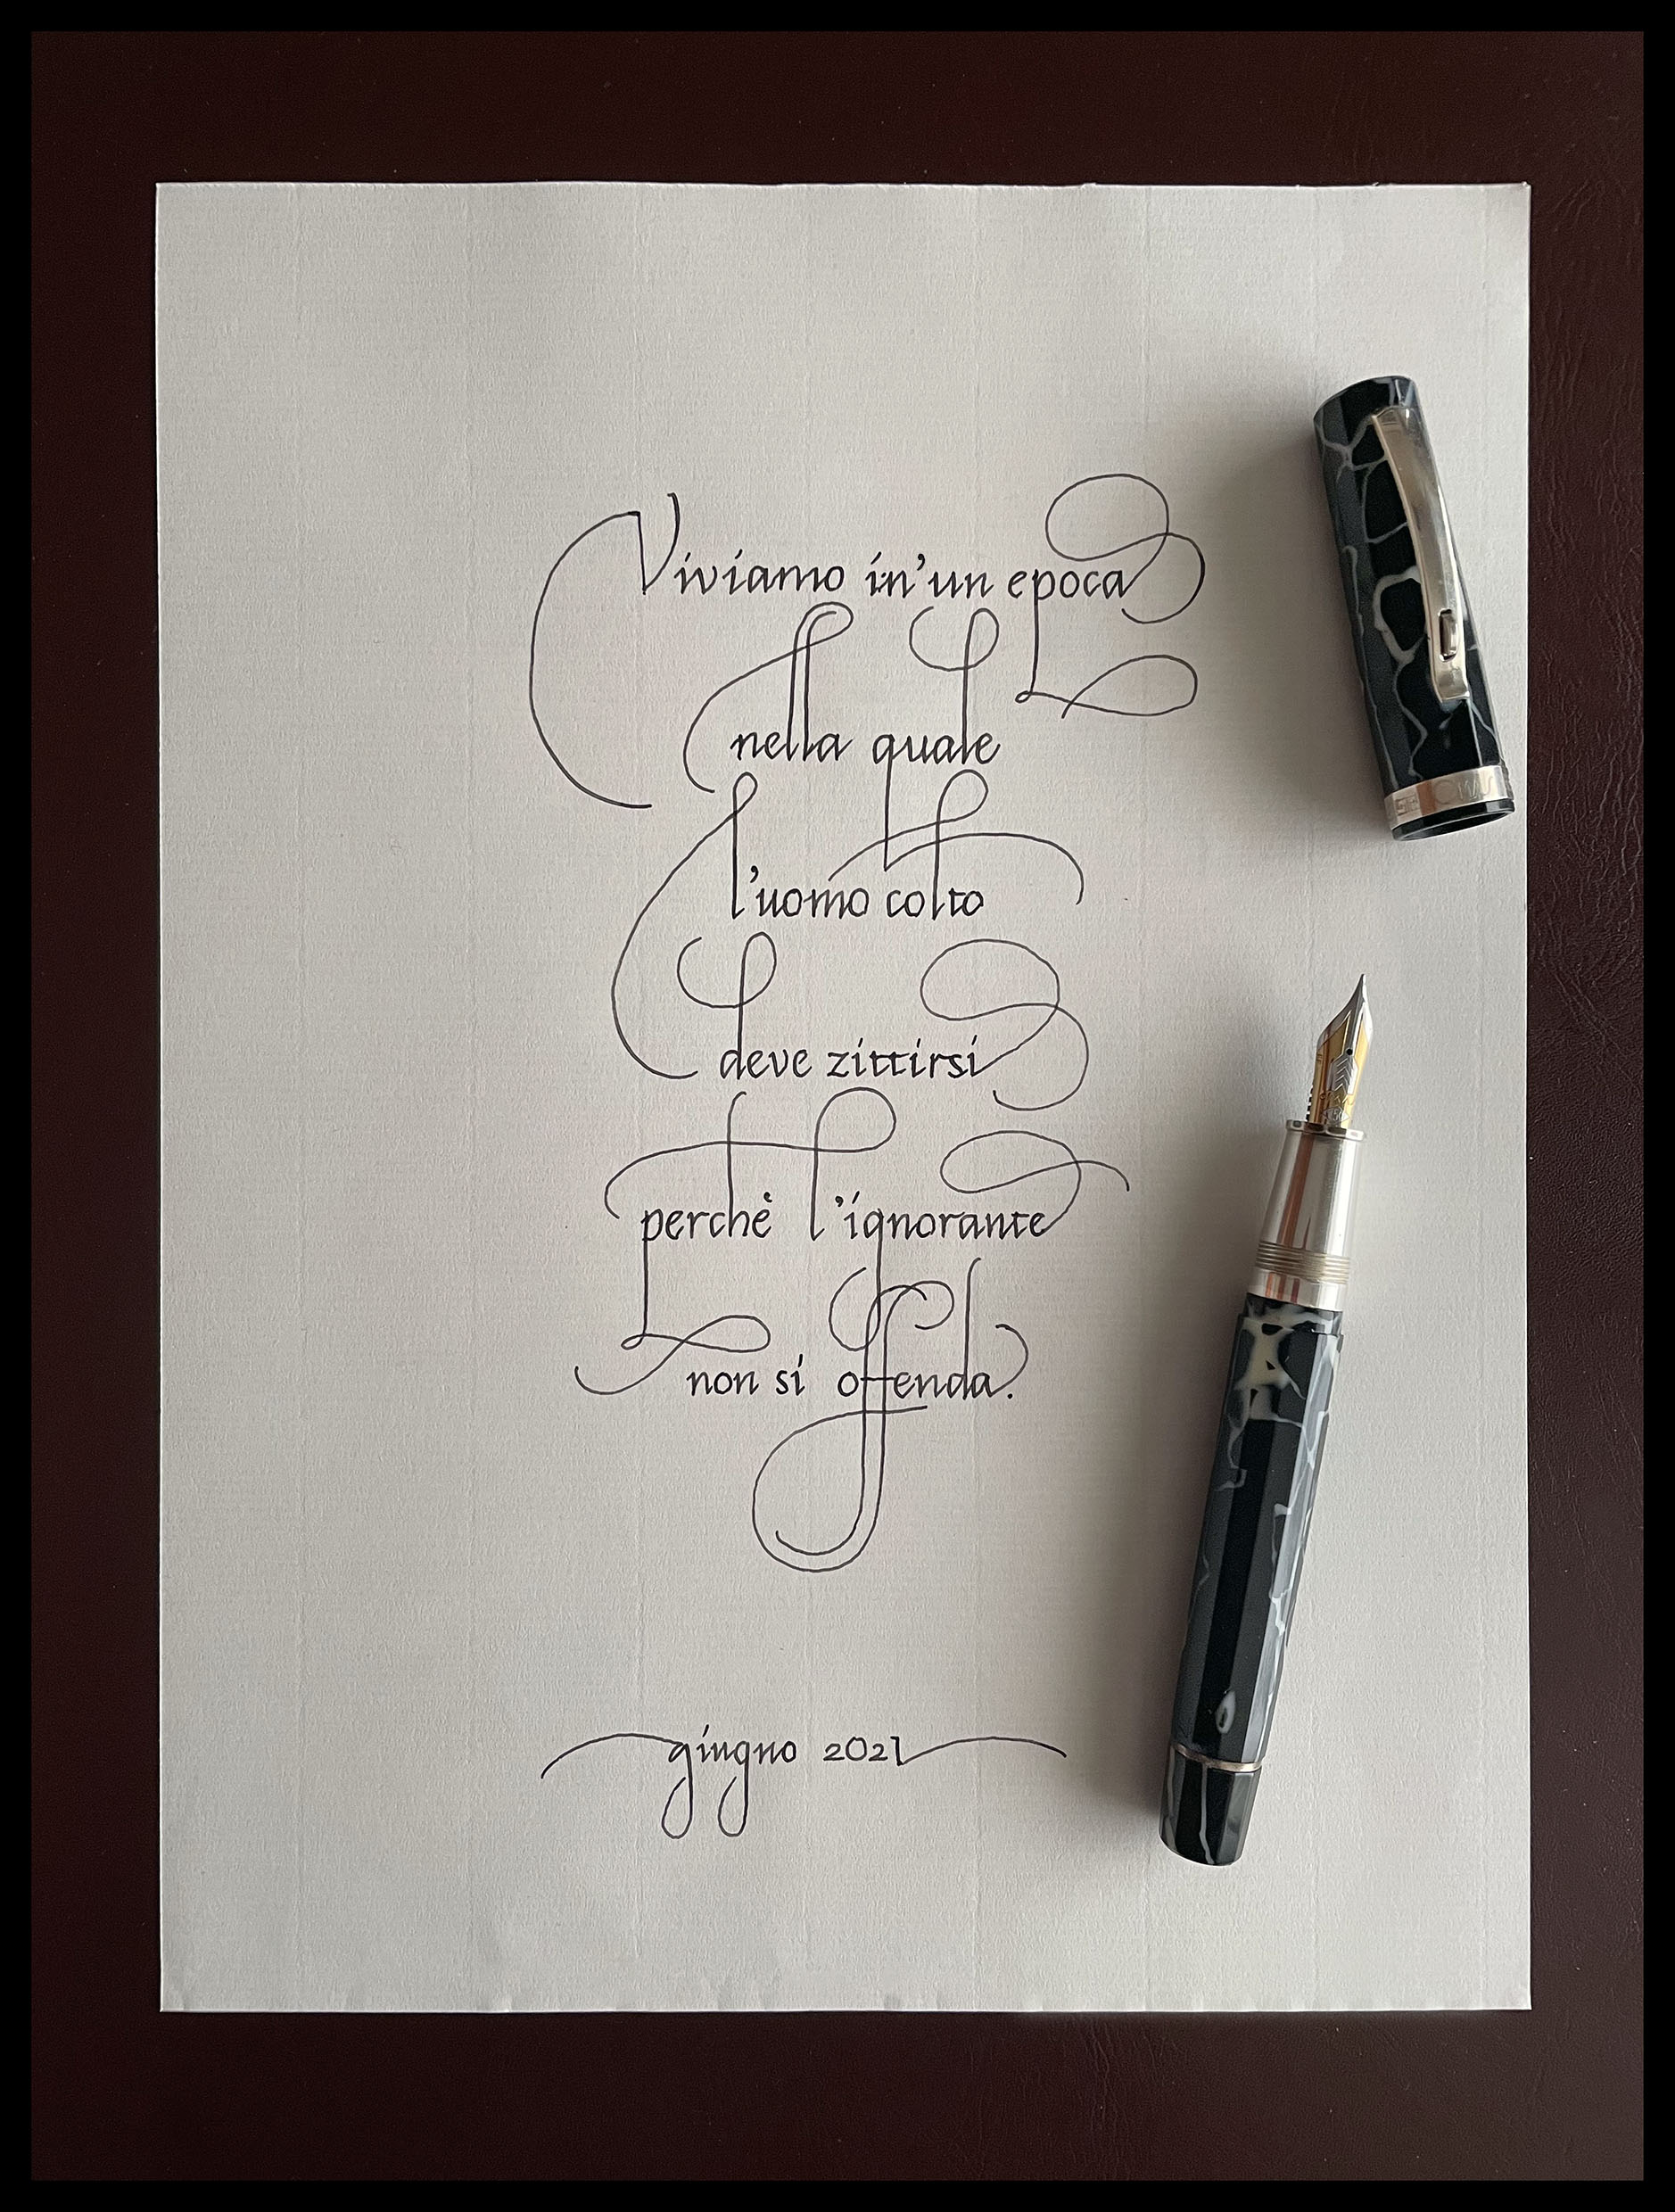 Viviamo in'un epoca
nella quale
l'uomo colto
deve zittirsi
perchè l'ignorante
non si offenda.
giugno 2021